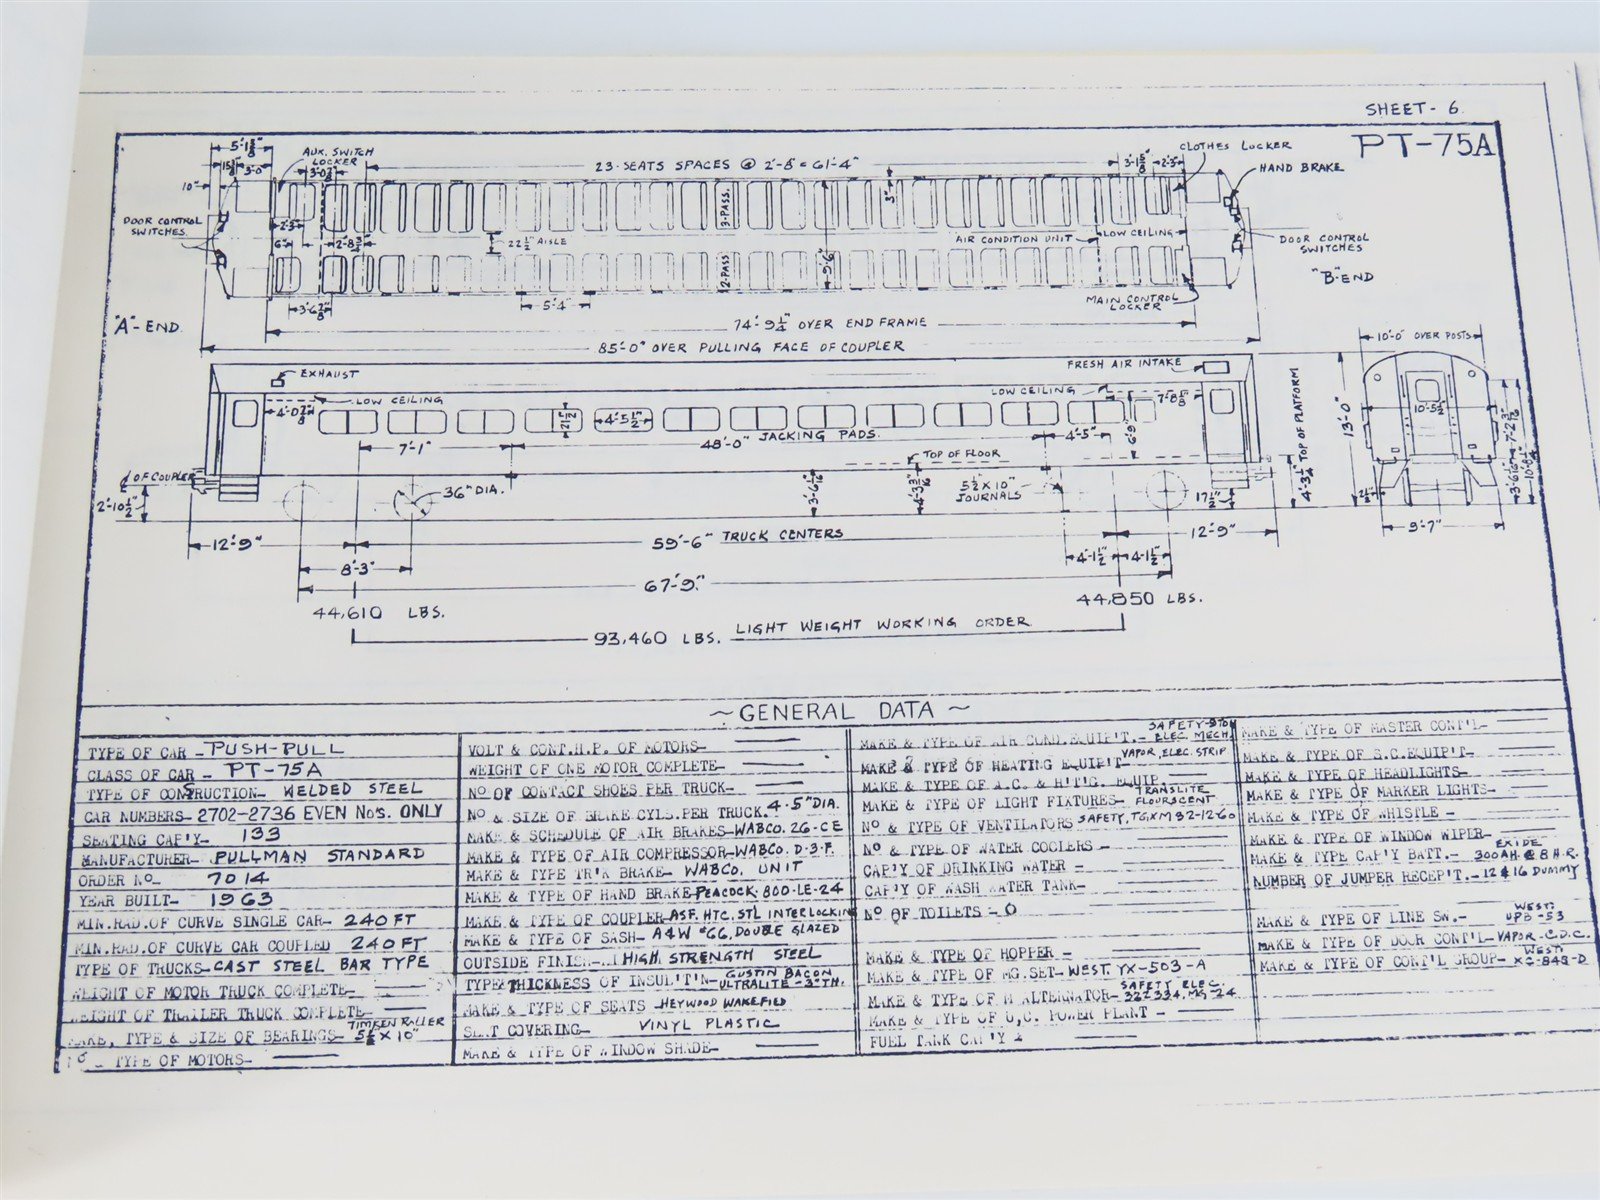 SHEET - 6
PT-75A
5'-1⅛"
AUX. SWITCH
LOCKER
3'-0"
3'-0⅞"
23 SEATS SPACES @ 2'-8" = 61'-4"
2'-3"
CLOTHES LOCKER
HAND BRAKE
10"
DOOR CONTROL
SWITCHES
2'-3"
6"
22½" AISLE
3-PASS.
2-PASS.
9'-6"
3"
AIR CONDITION UNIT
LOW CEILING
DOOR CONTROL
SWITCHES
"B"-END
3'-6⅞"
5'-4"
MAIN CONTROL
LOCKER
"A"-END
74'-9¼" OVER END FRAME
85'-0" OVER PULLING FACE OF COUPLER
10'-0" OVER POSTS
EXHAUST
FRESH AIR INTAKE
LOW CEILING
LOW CEILING
4'-0⅞"
4'-5½"
7'-8⅛"
10'-5½"
7'-1"
48'-0" JACKING PADS.
4'-5"
6'-9"
13'-0"
4'-3¼" TOP OF PLATFORM
℄ OF COUPLER
TOP OF FLOOR
36" DIA.
5½ X 10"
JOURNALS
17½"
2'-10½"
9'-7"
12'-9"
59'-6" TRUCK CENTERS
12'-9"
8'-3"
4'-1½"
4'-1½"
67'-9"
44,610 LBS.
44,850 LBS.
93,460 LBS. LIGHT WEIGHT WORKING ORDER
~GENERAL DATA~
TYPE OF CAR - PUSH-PULL
CLASS OF CAR - PT-75A
TYPE OF CONSTRUCTION- WELDED STEEL
CAR NUMBERS- 2702-2736 EVEN No's. ONLY
SEATING CAP'Y- 133
MANUFACTURER- PULLMAN STANDARD
ORDER No- 7014
YEAR BUILT- 1963
MIN.RAD.OF CURVE SINGLE CAR- 240 FT
MIN.RAD.OF CURVE CAR COUPLED 240 FT
TYPE OF TRUCKS- CAST STEEL BAR TYPE
WEIGHT OF MOTOR TRUCK COMPLETE-
WEIGHT OF TRAILER TRUCK COMPLETE-
MAKE, TYPE & SIZE OF BEARINGS- TIMKEN ROLLER 5½ X 10"
No - TYPE OF MOTORS-
VOLT & CONT.H.P. OF MOTORS-
WEIGHT OF ONE MOTOR COMPLETE-
No OF CONTACT SHOES PER TRUCK-
No & SIZE OF BRAKE CYLS. PER TRUCK. 4-5" DIA.
MAKE & SCHEDULE OF AIR BRAKES-WABCO. 26-CE
MAKE & TYPE OF AIR COMPRESSOR-WABCO. D-3-F.
MAKE & TYPE TR'K BRAKE- WABCO. UNIT
MAKE & TYPE OF HAND BRAKE-PEACOCK 800-LE-24
MAKE & TYPE OF COUPLER-ASF. HTC, STL INTERLOCKING
MAKE & TYPE OF SASH- A&W #66, DOUBLE GLAZED
OUTSIDE FINISH- HIGH STRENGTH STEEL
TYPE& THICKNESS OF INSUL'T'N- GUSTIN BACON ULTRALITE -3" TH.
MAKE & TYPE OF SEATS -HEYWOOD WAKEFIELD
SEAT COVERING- VINYL PLASTIC
MAKE & TYPE OF WINDOW SHADE-
MAKE & TYPE OF AIR COND.EQUIP'T.- ELEC. MECH.
MAKE & TYPE OF HEATING EQUIP'T- VAPOR, ELEC. STRIP
MAKE & TYPE OF A.C. & H'T'G. EQUIP.
MAKE & TYPE OF LIGHT FIXTURES- TRANSLITE FLOURSCENT
No & TYPE OF VENTILATORS SAFETY, TGXM 32-12-60
No & TYPE OF WATER COOLERS -
CAP'Y OF DRINKING WATER -
CAP'Y OF WASH WATER TANK-
No OF TOILETS - O
MAKE & TYPE OF HOPPER -
MAKE & TYPE OF MG.SET-WEST. YX-503-A
MAKE & TYPE OF ALTERNATOR- SAFETY ELEC.
MAKE & TYPE OF U.C. POWER PLANT -
FUEL TANK CAP'Y
MAKE & TYPE OF MASTER CONT'L-
MAKE & TYPE OF S.C.EQUIP'T-
MAKE & TYPE OF HEADLIGHTS-
MAKE & TYPE OF MARKER LIGHTS-
MAKE & TYPE OF WHISTLE -
MAKE & TYPE OF WINDOW WIPER-
MAKE & TYPE CAP'Y BATT.- EXIDE 300AH.@ 8 H.R.
NUMBER OF JUMPER RECEP'T.- 12 & 16 DUMMY
MAKE & TYPE OF LINE SW.- WEST. UPB-53
MAKE & TYPE OF DOOR CONT'L-VAPOR-C.D.C.
MAKE & TYPE OF CONT'L GROUP- WEST. XC-848-D